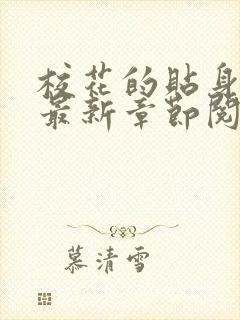 校花的贴身
最新章节阅
慕清雪